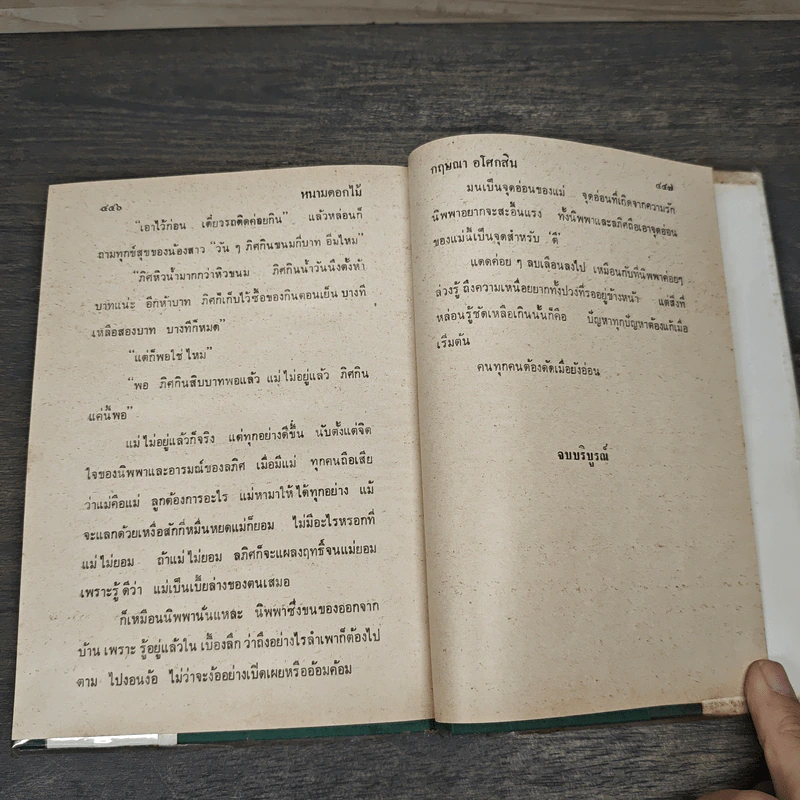 ๔๔๖ หนามดอกไม้
“เอาไว้ก่อน เดี๋ยวรถติดค่อยกิน” แล้วหล่อนก็
ถามทุกข์สุขของน้องสาว “วัน ๆ ภิศกินขนมกี่บาท อิ่มไหม”
“ภิศหิวน้ำมากกว่าหิวขนม ภิศกินน้ำวันนึงตั้งห้า
บาทแน่ะ อีกห้าบาท ภิศก็เก็บไว้ซื้อของกินตอนเย็น บางที
เหลือสองบาท บางทีก็หมด”
“แต่ก็พอใช่ไหม”
“พอ ภิศกินสิบบาทพอแล้ว แม่ไม่อยู่แล้ว ภิศกิน
แค่นี้พอ”
แม่ไม่อยู่แล้วก็จริง แต่ทุกอย่างดีขึ้น นับตั้งแต่จิต
ใจของนิพพาและอารมณ์ของลภิศ เมื่อมีแม่ ทุกคนถือเสีย
ว่าแม่คือแม่ ลูกต้องการอะไร แม่หามาให้ได้ทุกอย่าง แม้
จะแลกด้วยเหงื่อสักกี่หมื่นหยดแม่ก็ยอม ไม่มีอะไรหรอกที่
แม่ไม่ยอม ถ้าแม่ไม่ยอม ลภิศก็จะแผลงฤทธิ์จนแม่ยอม
เพราะรู้ดีว่า แม่เป็นเบี้ยล่างของตนเสมอ
ก็เหมือนนิพพานั่นแหละ นิพพาซึ่งขนของออกจาก
บ้าน เพราะ รู้อยู่แล้วใน เบื้องลึก ว่าถึงอย่างไรลำเพาก็ต้องไป
ตาม ไปงอนง้อ ไม่ว่าจะง้ออย่างเปิดเผยหรืออ้อมค้อม
กฤษณา อโศกสิน ๔๔๗
มนเป็นจุดอ่อนของแม่ จุดอ่อนที่เกิดจากความรัก
นิพพาอยากจะสะอื้นแรง ทั้งนิพพาและลภิศถือเอาจุดอ่อน
ของแม่นี้เป็นจุดสำหรับ ‘ตี’
แดดค่อย ๆ ลบเลือนลงไป เหมือนกับที่นิพพาค่อยๆ
ล่วงรู้ ถึงความเหนื่อยยากทั้งปวงที่รออยู่ข้างหน้า แต่สิ่งที่
หล่อนรู้ชัดเหลือเกินนั้นก็คือ ปัญหาทุกปัญหาต้องแก้เมื่อ
เริ่มต้น
คนทุกคนต้องดัดเมื่อยังอ่อน
จบบริบูรณ์